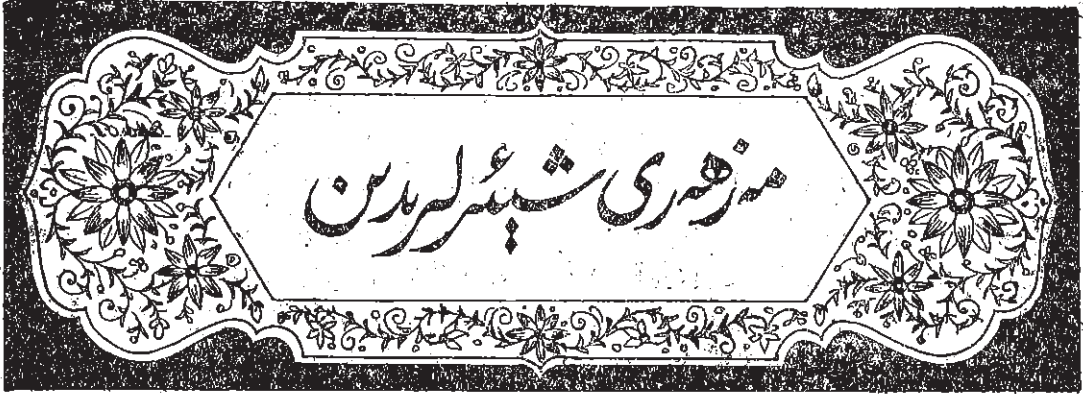 مەزھەرى شېئىرلىرىدىن